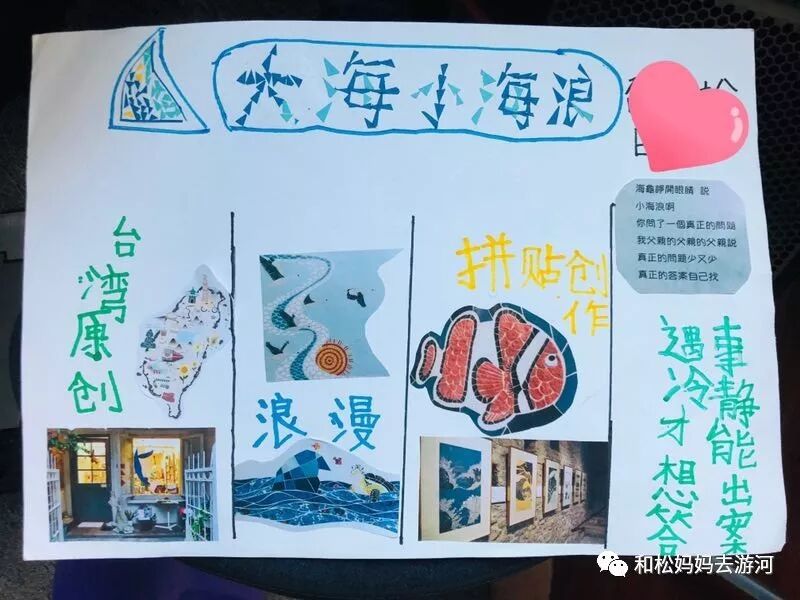 大海小海浪
台湾原创
浪漫
拼贴创作
海龜睜開眼睛 說
小海浪啊
你問了一個真正的問題
我父親的父親的父親說
真正的問題少又少
真正的答案自己找
遇事
冷静
才能
想出
答案
和松妈妈去游河